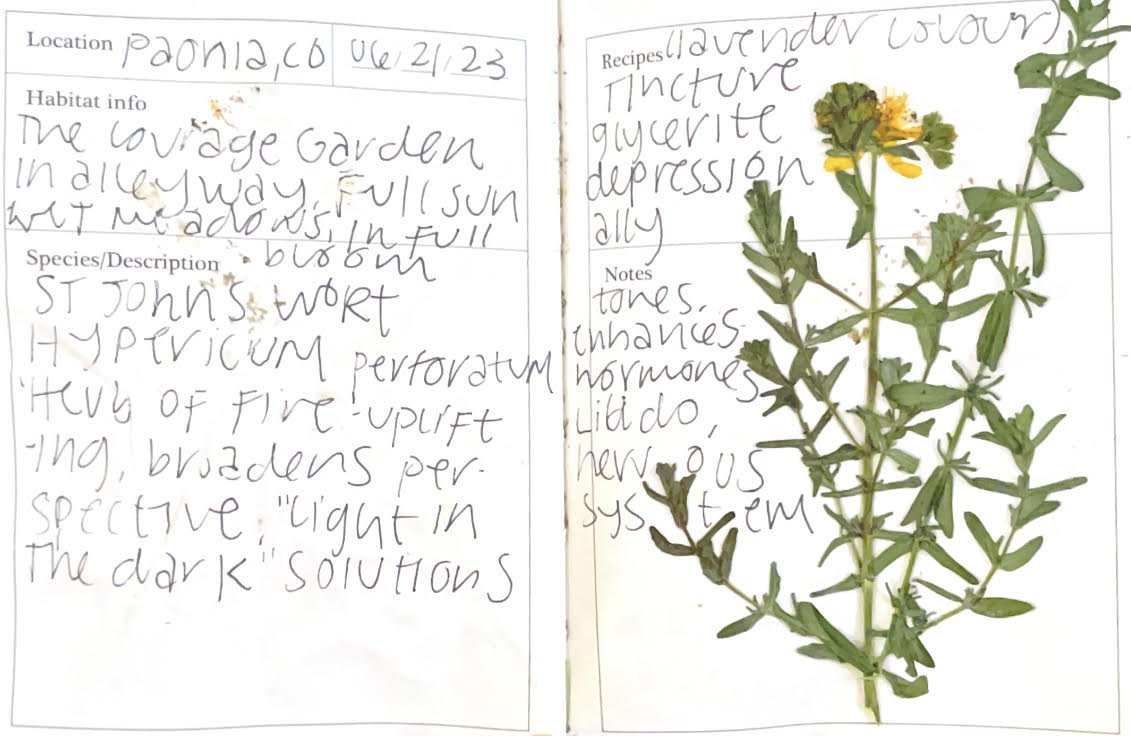 Location Paonia, CO 06 21 23
Habitat info
The Courage Garden
in alleyway, Full sun
wet meadows, in full
bloom
Species/Description
ST JOHNS WORT
HYPERICUM perforatum
"Herb OF Fire - uplift
-ing, broadens per-
spective, "Light in
The dark" SOLUTIONS
Recipes (lavender colour)
Tincture
glycerite
depression
ally
Notes
tones,
enhances
hormones
Libido,
nervous
system